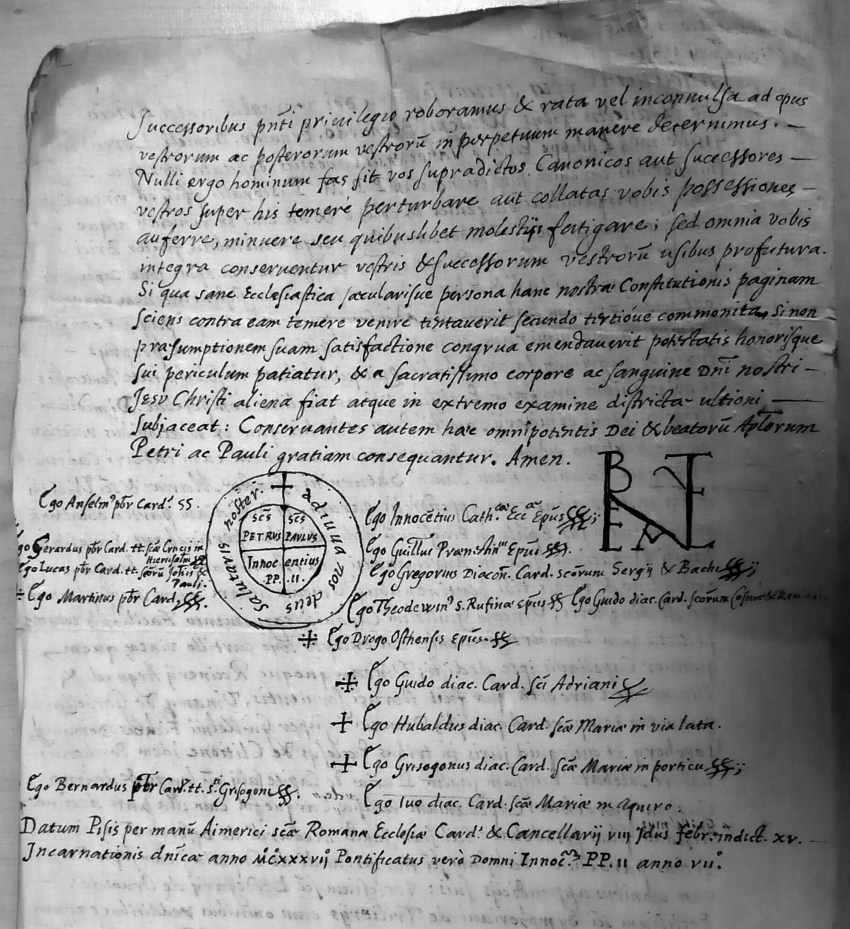 Successoribus pn̄ti privilegio roboramus & rata vel inconvulsa ad opus
vestrorum ac posterorum vestrorū in perpetuum manere decernimus. —
Nulli ergo hominum fas sit vos supradictos Canonicos aut successores —
vestros super his temerè perturbare aut collatas vobis possessiones —
auferre, minuere seu quibuslibet molestijs fatigare; sed omnia vobis
integra conserventur vestris & successorum vestrorū usibus profutura.
Si qua sane Ecclesiastica sæcularisve persona hanc nostræ Constitutionis paginam
sciens contra eam temere venire tentaverit secundo tertiove commonita, si non
præsumptionem suam satisfactione congrua emendaverit potestatis honorisque
sui periculum patiatur, & a sacratissimo corpore ac sanguine Dn̄i nostri —
Jesu Christi aliena fiat atque in extremo examine districtæ ultioni —
subjaceat: Conservantes autem hæc omnipotentis Dei & beatorū Apl̄orum
Petri ac Pauli gratiam consequantur. Amen.
BENE VALETE
adiuva nos deus salutaris noster.
scs̄ PETRUS scs̄ PAULUS
Innocentius PP. II.
Ego Anselm' pbr̄ Card. SS.
Ego Innocētius Cath. Ecc Epūs SS;
Ego Gerardus pbr̄ Card. tt. scæ Crucis in Hierusalem
Ego Guillūs Prænestin Epūs SS.
Ego Lucas pbr̄ Card. tt. scōrū Johis & Pauli.
Ego Gregorius Diacoñ. Card. scōrum Sergij & Bachi SS;
+ Ego Martinus pbr̄ Card. SS.
Ego Theodewin' S. Rufinæ Epūs SS Ego Guido diac. Card. scōrum Cosmæ &
+ Ego Drogo Osthensis Epūs. SS
+ Ego Guido diac. Card. scī Adriani
+ Ego Hubaldus diac. Card. scæ Mariæ in via lata.
+ Ego Grisogonus diac. Card. scæ Mariæ in porticu SS;
Ego Bernardus pbr̄ Card. tt. Sⁿ Grisogoni SS.
Ego Ivo diac. Card. scæ Mariæ in Aquiro.
Datum Pisis per manū Aimerici scæ Romanæ Ecclesiæ Card. & Cancellarij viij Idus febr. indict. xv. —
Incarnationis dn̄icæ anno MCXXXVIJ Pontificatus verò Domni Innoc PP. II anno vii°.